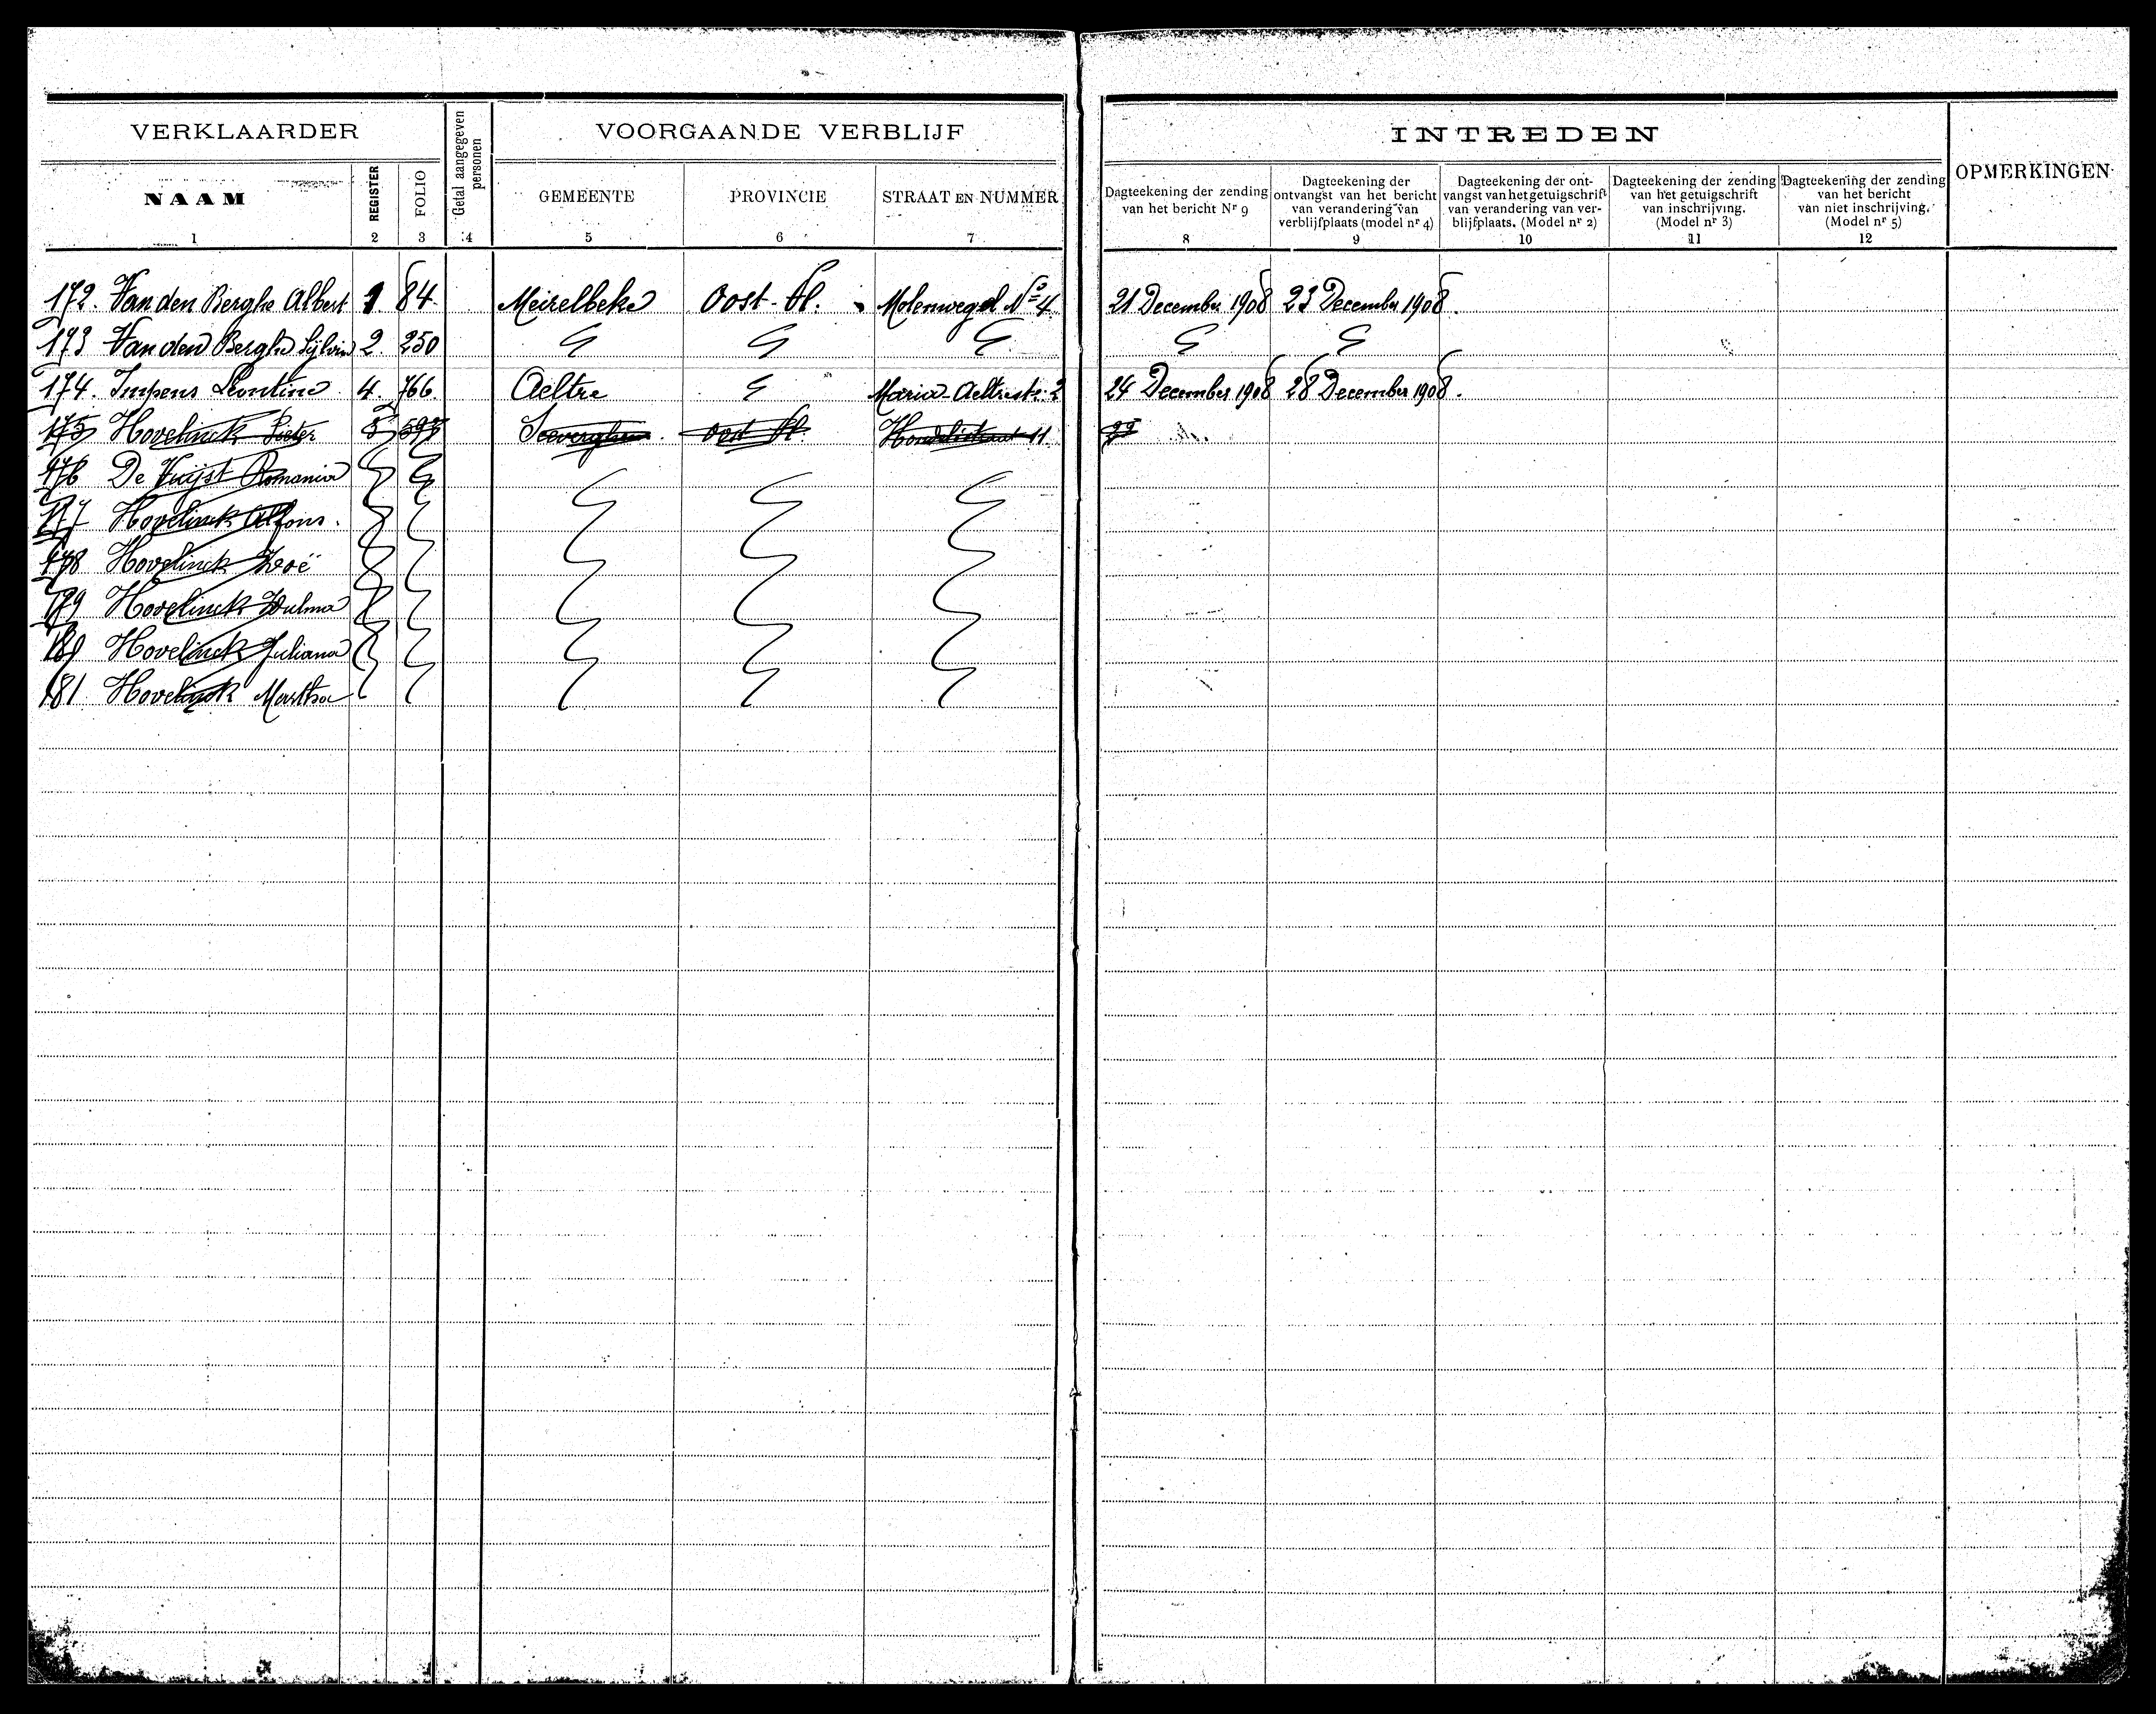 VERKLAARDER Getal aangegeven personen VOORGAANDE VERBLIJF INTREDEN OPMERKINGEN
NAAM REGISTER FOLIO GEMEENTE PROVINCIE STRAAT EN NUMMER
Dagteekening der zending van het bericht Nr 9
Dagteekening der ontvangst van het bericht van verandering van verblijfplaats (model nr 4)
Dagteekening der ont-vangst van het getuigschrift van verandering van ver-blijfplaats. (Model nr 2)
Dagteekening der zending van het getuigschrift van inschrijving. (Model nr 3)
Dagteekening der zending van het bericht van niet inschrijving. (Model nr 5)
1 2 3 4 5 6 7 8 9 10 11 12
172. Van den Berghe Albert 1 84 Meirelbeke Oost-Vl. Molenwegel No 4 21 December 1908 23 December 1908.
173 Van den Berghe Sijlvia 2 250
174. Impens Leontine 4. 766. Aeltre Maria-Aeltrestr. 2 24 December 1908 28 December 1908.
175 Hovelinck Pieter 5 Seeverghem. Oost Vl. 11
176 De Vuijst Romania
177 Hovelinck Alfons.
178 Hovelinck Zoë
179 Hovelinck Zulma
180 Hovelinck Juliana
181 Hovelinck Martha